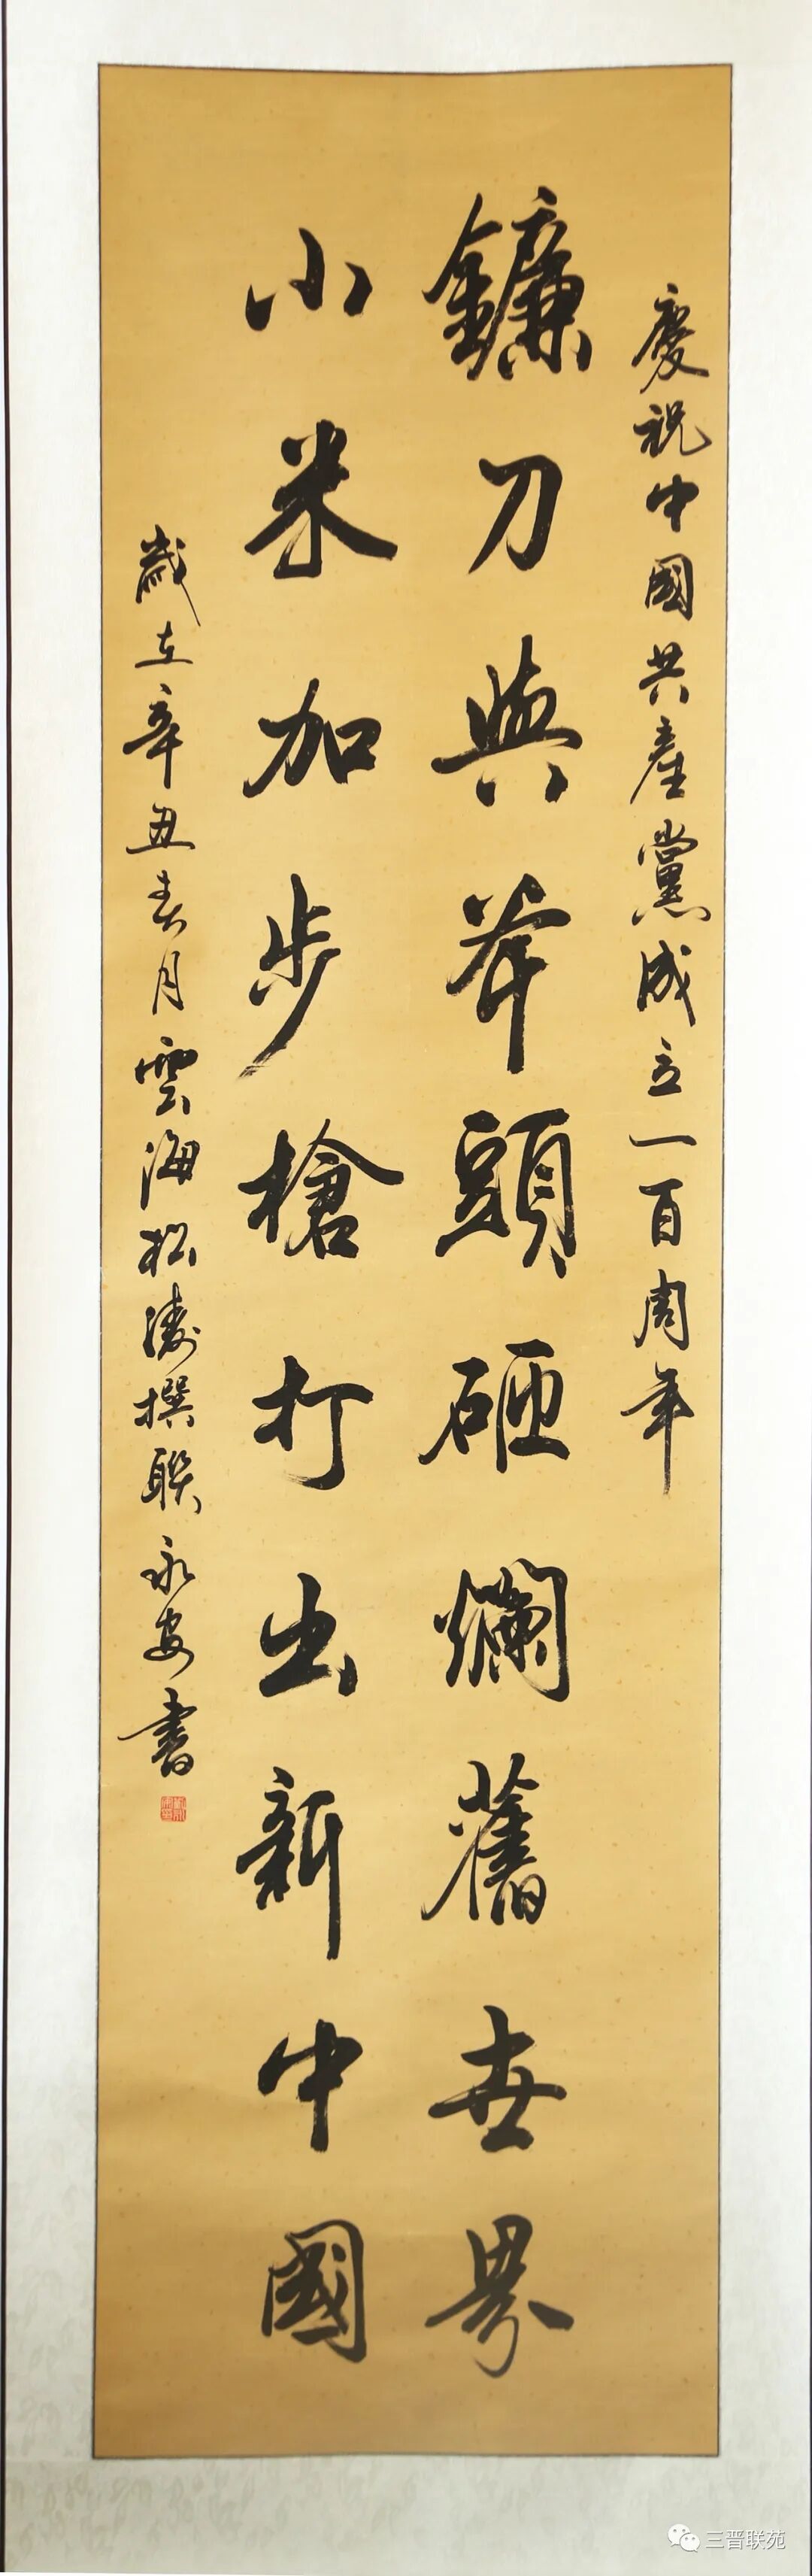 慶祝中國共產黨成立一百周年
鐮刀與斧頭砸爛舊世界
小米加步槍打出新中國
歲在辛丑春月雲海松濤撰聯永安書
三晋联苑